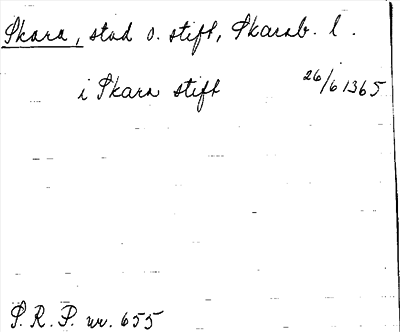 Skara, stad o. stift, Skarab. l.
i Skara stift 26/6 1365
S. R. P. nr. 655